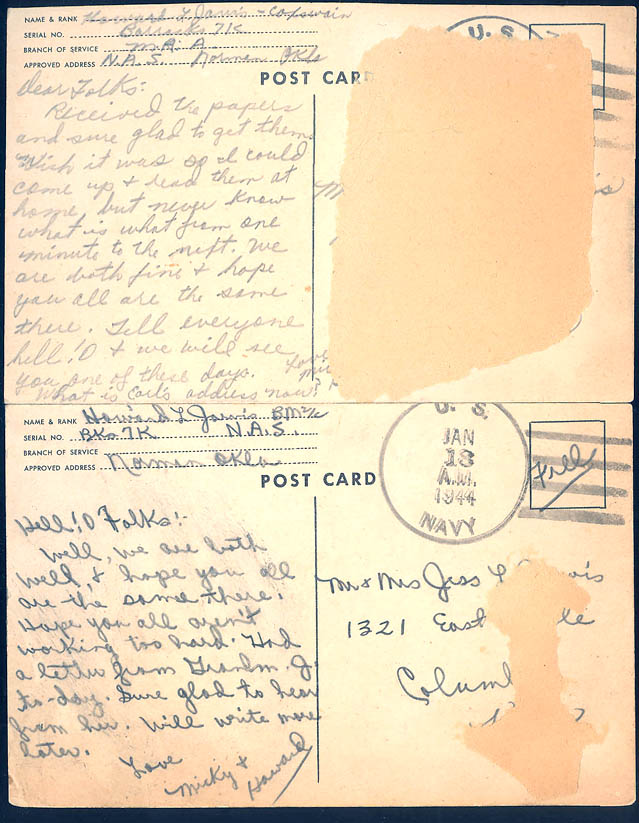 NAME & RANK Howard L Jarvis - Coxswain
SERIAL NO. Barracks 71c
BRANCH OF SERVICE M.A.A
APPROVED ADDRESS N.A.S. Norman Okla
POST CARD
U.S.
Dear Folks:
Received the papers
and sure glad to get them.
Wish it was so I could
come up & read them at
home, but never know
what is what from one
minute to the next. We
are both fine & hope
you all are the same
there. Tell everyone
hell!O & we will see
you one of these days. Love
What is Carl's address now?
NAME & RANK Howard L Jarvis BM2/c
SERIAL NO. BKs 7K N.A.S.
BRANCH OF SERVICE
APPROVED ADDRESS Norman Okla
POST CARD
U. S.
JAN
18
A.M.
1944
NAVY
Free
Hell!O Folks:-
Well, we are both
well, & hope you all
are the same there.
Hope you all aren't
working too hard. Had
a letter from Grandm. J.
to-day. Sure glad to hear
from her. Will write more
later.
Love
Micky &
Howard
Mr & Mrs Jess L
1321 East
Colum